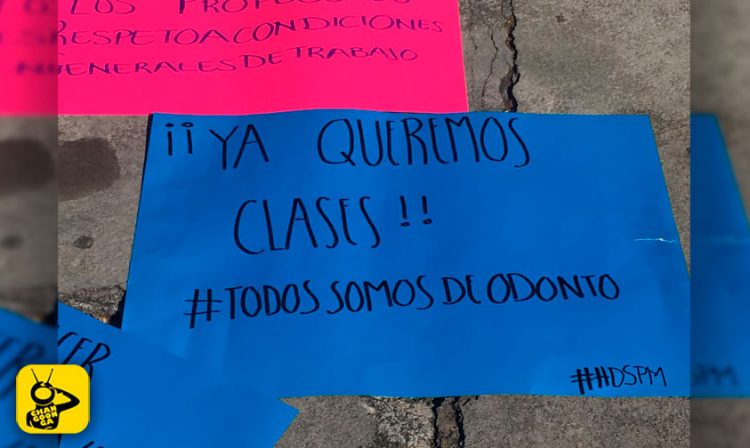 LOS PROFESORES
RESPETO A CONDICIONES
GENERALES DE TRABAJO
¡¡YA QUEREMOS
CLASES!!
#TODOS SOMOS DE ODONTO
#HDSPM
CHAN
GOON
GA